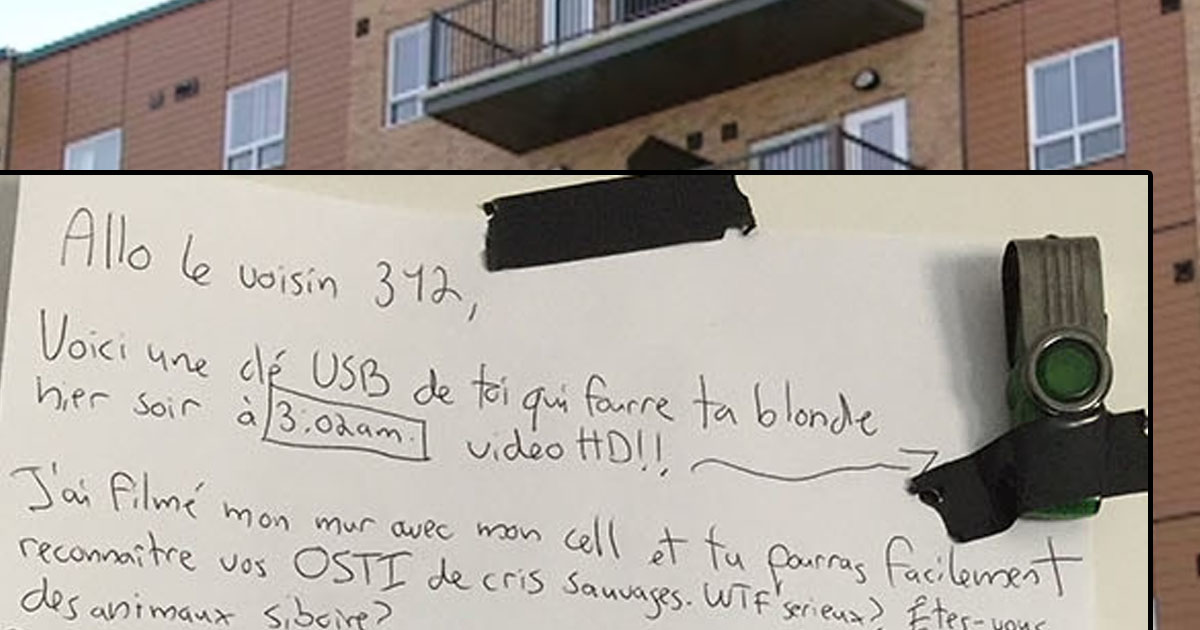 Allo le voisin 312,
Voici une clé USB de toi qui fourre ta blonde
hier soir à 3:02am. video HD!!
J'ai filmé mon mur avec mon cell et tu pourras facilement
reconnaître vos OSTI de cris sauvages. WTF serieux? Êtes-vous
des animaux siboire?